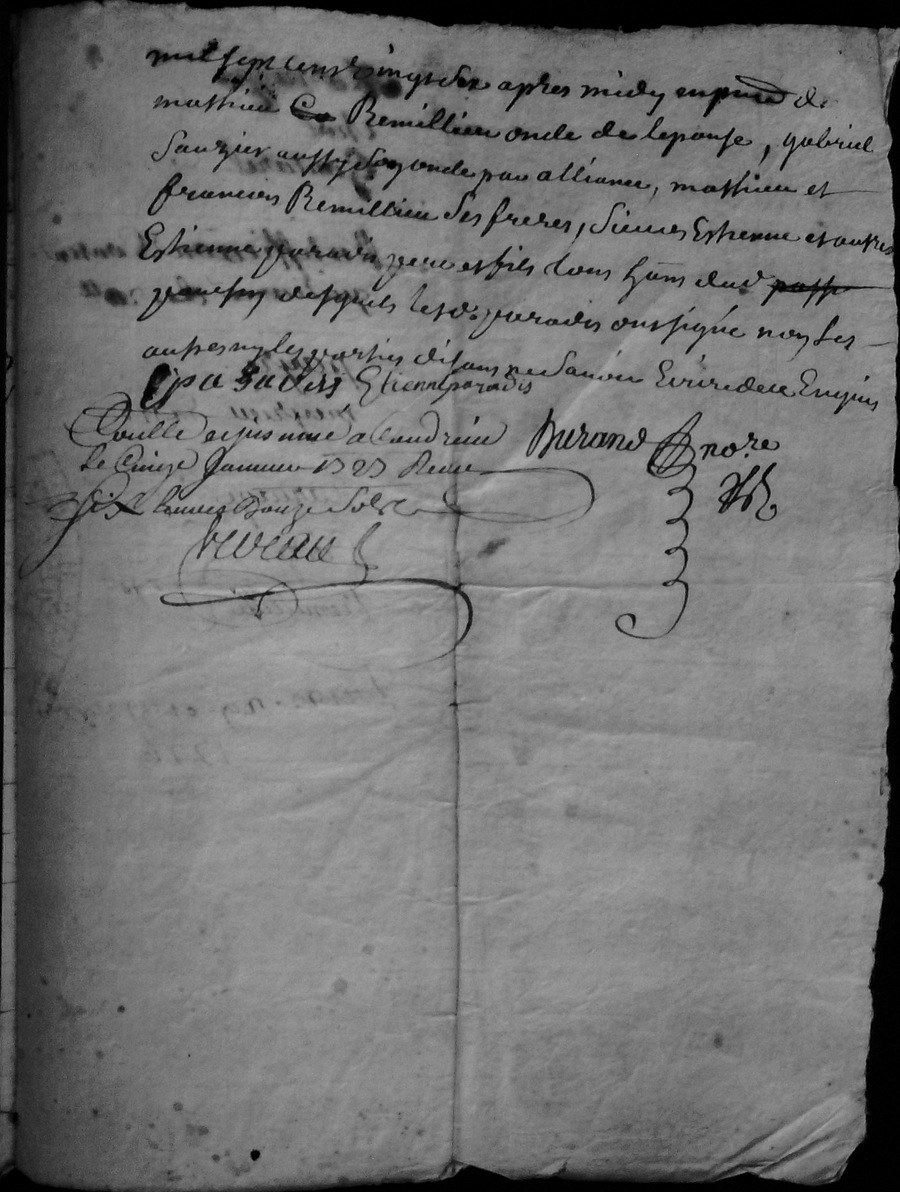 mil sept cens vingt six apres midy en pnce de
mathieu Remillieu oncle de lepouse, gabriel
Sauzier aussy son oncle par alliance, mathieu et
francois Remillieu ses freres, Sieurs Estienne et autre
Estienne paradis pere et fils tous hans dud
desquels lesd. paradis ont signé non les
autres ny les parties disans ne Savoir Ecrire de ce Enquis
E paradis Etienne paradis
Conllé et insinué a Condrieu
Durand nore
Le Janvier 1727 Receu
Six livres Douze Sols